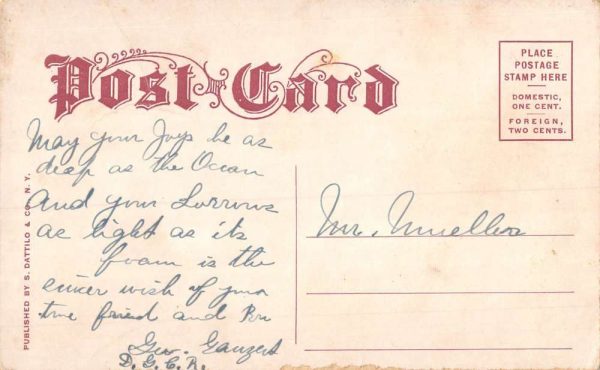 Post Card
PLACE
POSTAGE
STAMP HERE
DOMESTIC,
ONE CENT.
FOREIGN,
TWO CENTS.
May your Joys be as
deep as the Ocean
And your Sorrows
as light as its
foam is the
sincer wish of your
true friend and
Geo.
D.G.C.R.
Mr. Mueller
PUBLISHED BY S. DATTILO & CO. N. Y.